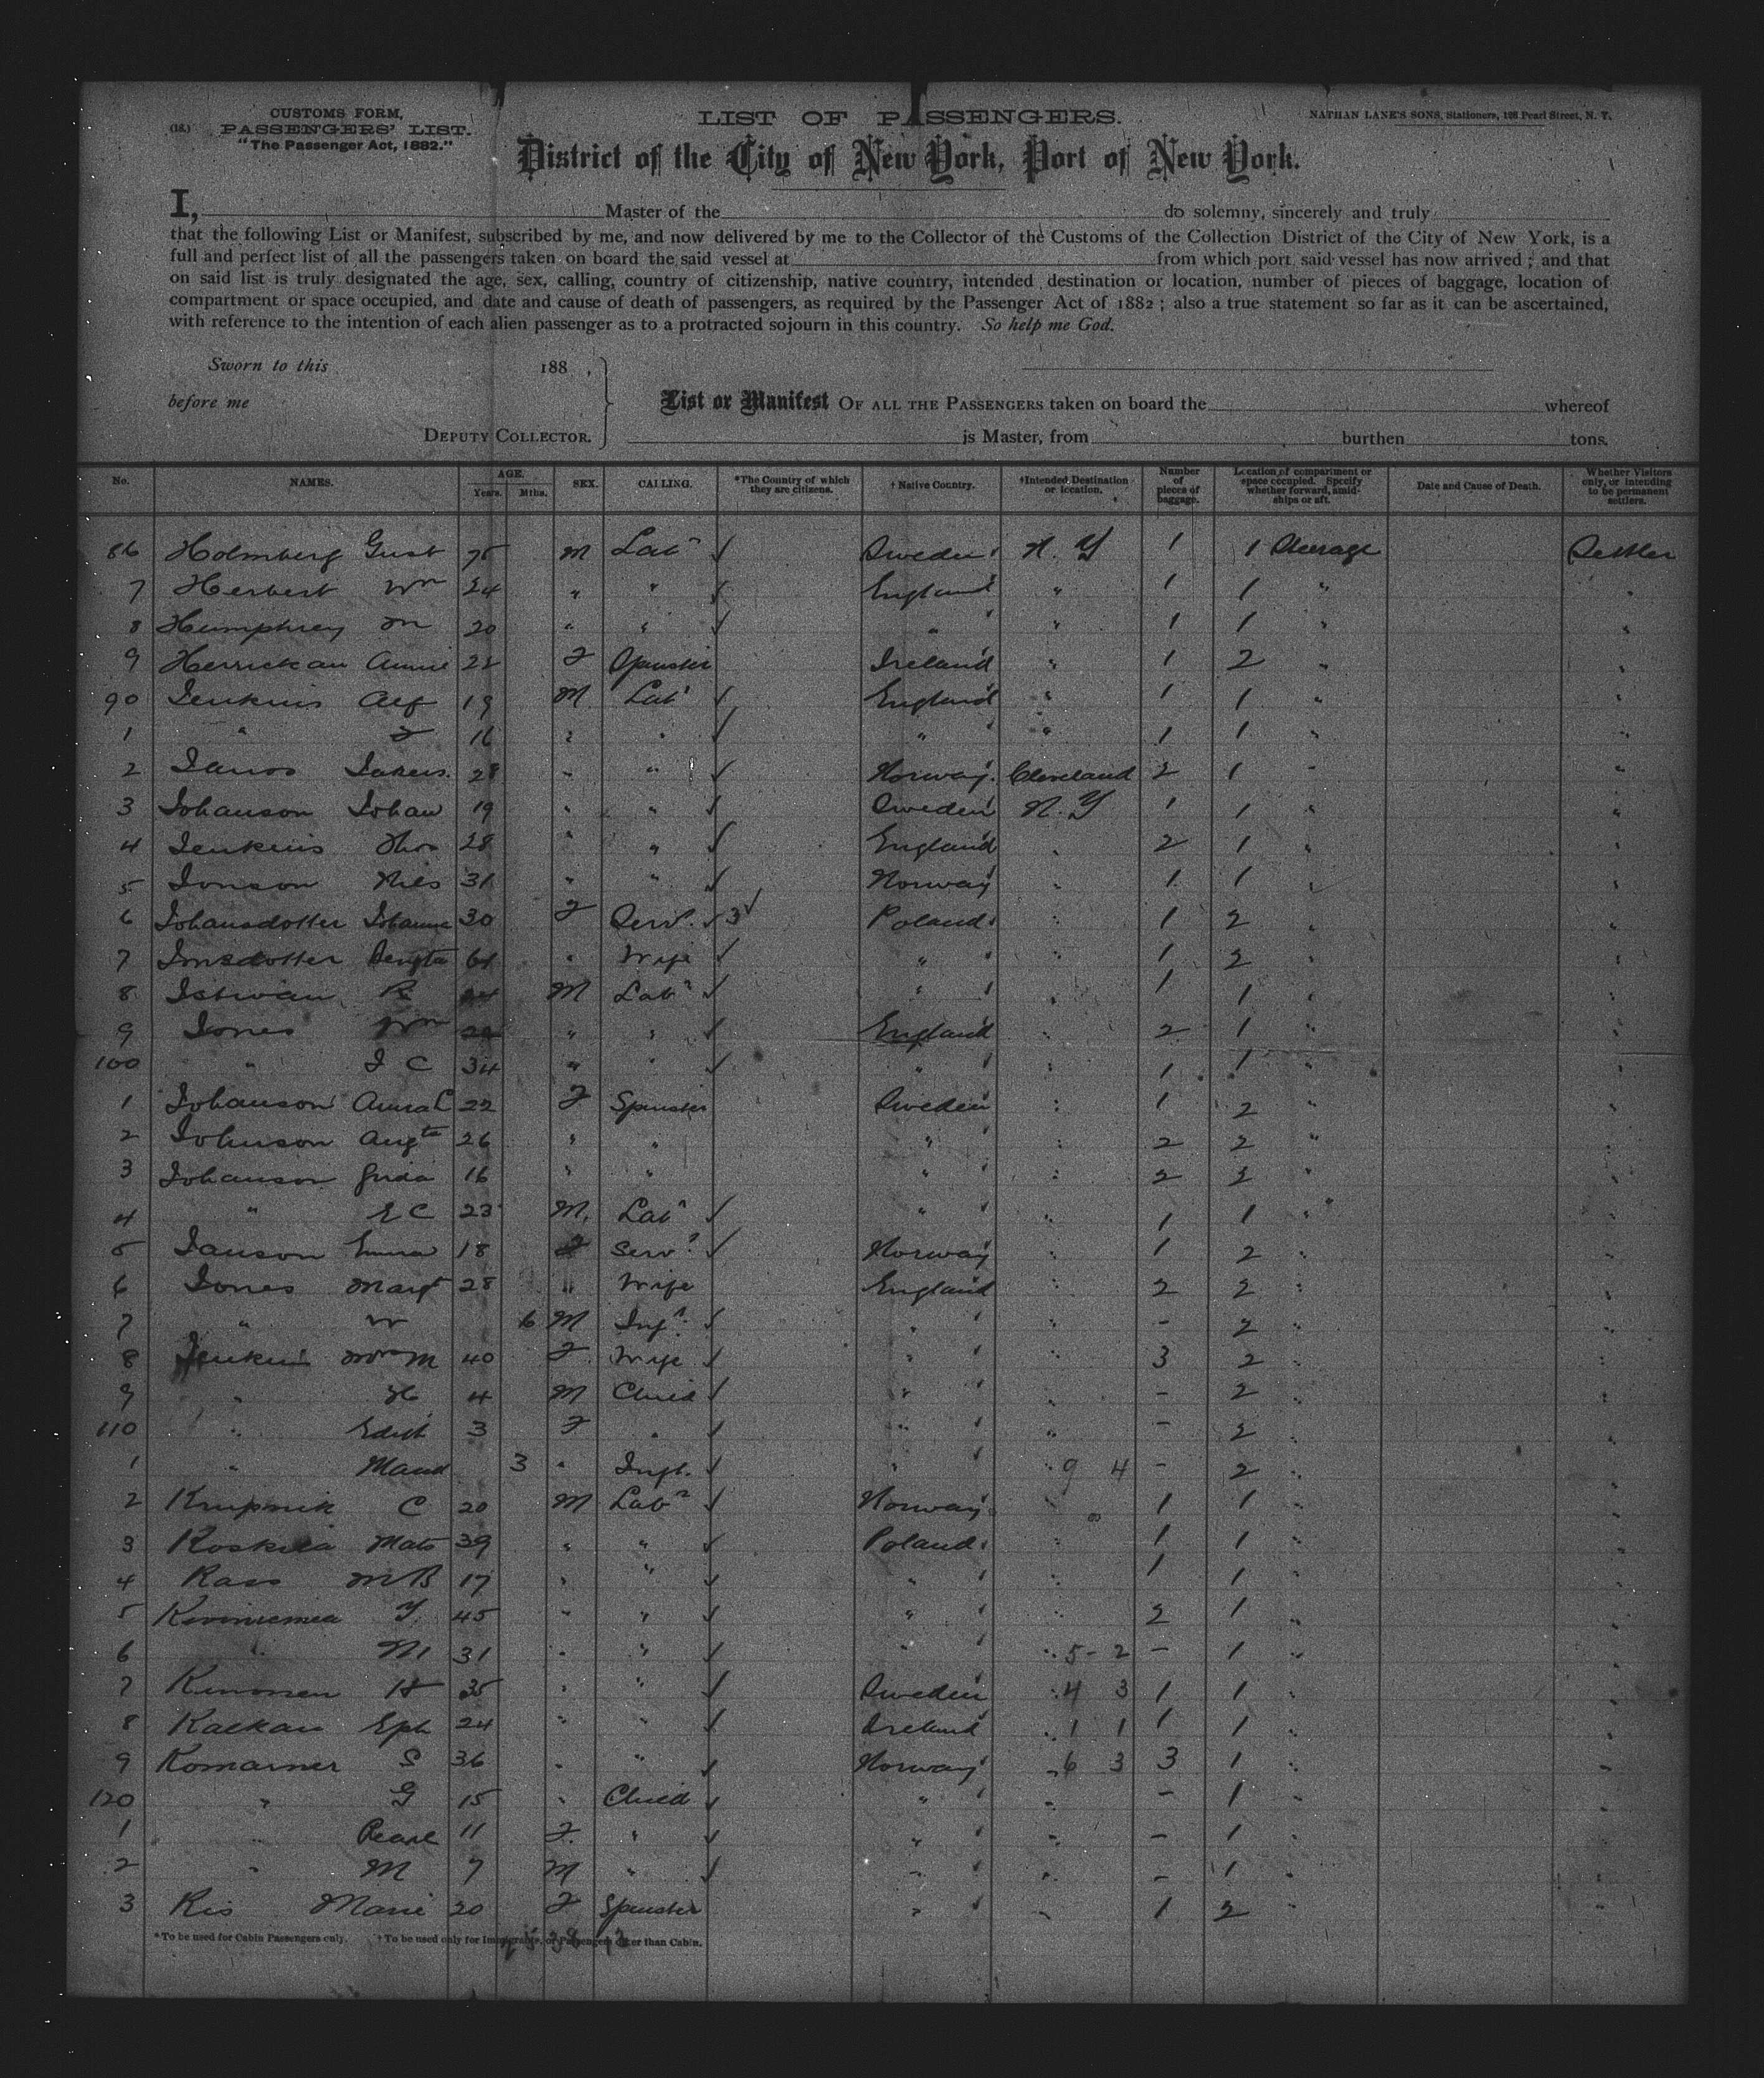 CUSTOMS FORM,
(18.) PASSENGERS' LIST.
"The Passenger Act, 1882."
LIST OF PASSENGERS.
NATHAN LANE'S SONS, Stationers, 108 Pearl Street, N. Y.
District of the City of New York, Port of New York.
I, Master of the do solemny, sincerely and truly
that the following List or Manifest, subscribed by me, and now delivered by me to the Collector of the Customs of the Collection District of the City of New York, is a
full and perfect list of all the passengers taken on board the said vessel at from which port said vessel has now arrived; and that
on said list is truly designated the age, sex, calling, country of citizenship, native country, intended destination or location, number of pieces of baggage, location of
compartment or space occupied, and date and cause of death of passengers, as required by the Passenger Act of 1882; also a true statement so far as it can be ascertained,
with reference to the intention of each alien passenger as to a protracted sojourn in this country. So help me God.
Sworn to this 188 ,
before me
DEPUTY COLLECTOR.
List or Manifest OF ALL THE PASSENGERS taken on board the whereof
is Master, from burthen tons.
No. NAMES. AGE. Years. Mths. SEX. CALLING. *The Country of which they are citizens. † Native Country. †Intended Destination or location. Number of pieces of baggage. Location of compartment or space occupied. Specify whether forward, amidships or aft. Date and Cause of Death. Whether Visitors only, or intending to be permanent settlers.
86 Holmberg Gust 75 M Labr ✓ Sweden N. Y 1 1 Steerage Settler
7 Herbert Wm 24 " " ✓ England " 1 1 " "
8 Humphrey M 20 " " ✓ " " 1 1 " "
9 Herrickan Annie 22 F Spinster Ireland " 1 2 " "
90 Jenkins Alf 19 M Labr ✓ England " 1 1 " "
1 " F 16 " " ✓ " " 1 1 " "
2 Janos 28 " " ✓ Norway Cleveland 2 1 " "
3 Johanson Johan 19 " " ✓ Sweden N. Y 1 1 " "
4 Jenkins Thos 28 " " ✓ England " 2 1 " "
5 Jonson Nils 31 " " ✓ Norway " 1 1 " "
6 Johansdotter Johanna 30 F Servt ✓ 3✓ Poland " 1 2 " "
7 Jonsdotter Bengta 61 " Wife ✓ " " 1 2 " "
8 Istwan M Labr ✓ " " 1 1 " "
9 Jones Wm " " ✓ England " 2 1 " "
100 " J C 34 " " ✓ " " 1 1 " "
1 Johanson Anna C 22 F Spinster Sweden " 1 2 " "
2 Johnson Augta 26 " " " " 2 2 " "
3 Johanson Frida 16 " " " " 2 2 " "
4 " E C 23 M. Labr ✓ " " 1 1 " "
5 Janson Emma 18 F Servt ✓ Norway " 1 2 " "
6 Jones Margt 28 " Wife England " 2 2 " "
7 " W 6 M Inft ✓ " " - 2 " "
8 Jenkins M 40 F Wife ✓ " " 3 2 " "
9 " H 4 M Child ✓ " " - 2 " "
110 " Edith 3 F " ✓ " " - 2 " "
1 " Maud 3 " Inft. ✓ " " 9 4 - 2 " "
2 Krupnik C 20 M Labr ✓ Norway 1 1 " "
3 Koskela Mats 39 " " ✓ Poland " 1 1 " "
4 Kass M B 17 " " ✓ " " 1 1 " "
5 Kiviniemia Y 45 " " ✓ " " 2 1 " "
6 " M 31 " " ✓ " " 5-2 - 1 " "
7 Kinonen H 35 " " ✓ Sweden " 4 3 1 1 " "
8 Kaekan Eph 24 " " ✓ Ireland " 1 1 1 1 " "
9 Komarner S 36 " " ✓ Norway " 6 3 3 1 " "
120 " G 15 " Child ✓ " " - 1 " "
1 " Pearl 11 F. " ✓ " " - 1 " "
2 " M 7 M " ✓ " " - 1 " "
3 Kis Marie 20 F Spinster " " 1 2 " "
* To be used for Cabin Passengers only. † To be used only for Immigrants, or Passengers other than Cabin.